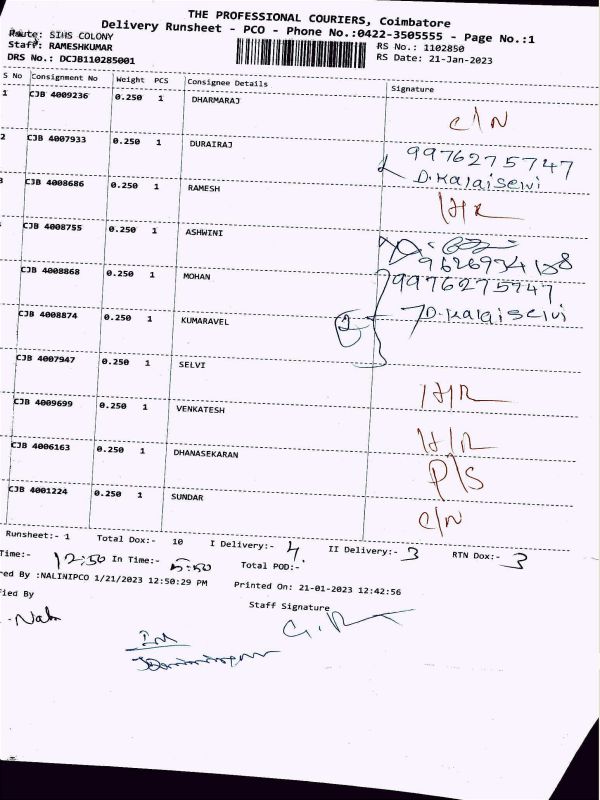 THE PROFESSIONAL COURIERS, Coimbatore
Delivery Runsheet - PCO - Phone No.:0422-3505555 - Page No.:1
Route: SIHS COLONY
Staff: RAMESHKUMAR RS No.: 1102850
DRS No.: DCJB110285001 RS Date: 21-Jan-2023
S No Consignment No Weight PCS Consignee Details Signature
1 CJB 4009236 0.250 1 DHARMARAJ C/N
2 CJB 4007933 0.250 1 DURAIRAJ 9976275747
D.Kalaiselvi
3 CJB 4008686 0.250 1 RAMESH H/R
CJB 4008755 0.250 1 ASHWINI
CJB 4008868 0.250 1 MOHAN 9976275747
CJB 4008874 0.250 1 KUMARAVEL 2 D.Kalaiselvi
CJB 4007947 0.250 1 SELVI
H/R
CJB 4009699 0.250 1 VENKATESH H/R
CJB 4006163 0.250 1 DHANASEKARAN P/S
CJB 4001224 0.250 1 SUNDAR C/N
Runsheet:- 1 Total Dox:- 10 I Delivery:- 4 II Delivery:- 3 RTN Dox:- 3
Time:- 12:50 In Time:- 5:50 Total POD:-
red By :NALINIPCO 1/21/2023 12:50:29 PM Printed On: 21-01-2023 12:42:56
fied By Staff Signature